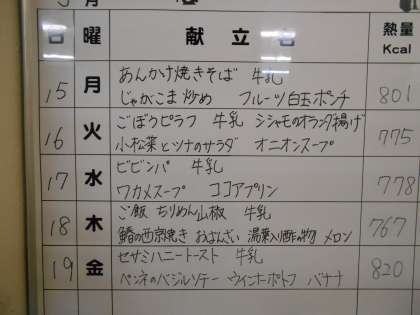 月
日 曜 献立名 熱量 Kcal
15 月 あんかけ焼きそば 牛乳
じゃがごま炒め フルーツ白玉ポンチ 801
16 火 ごぼうピラフ 牛乳 シシャモのオランダ揚げ
小松菜とツナのサラダ オニオンスープ 775
17 水 ビビンバ 牛乳
ワカメスープ ココアプリン 778
18 木 ご飯 ちりめん山椒 牛乳
鰆の西京焼き おばんざい 湯葉入り酢の物 メロン 767
19 金 セサミハニートースト 牛乳
ペンネのバジルソテー ウインナーポトフ バナナ 820